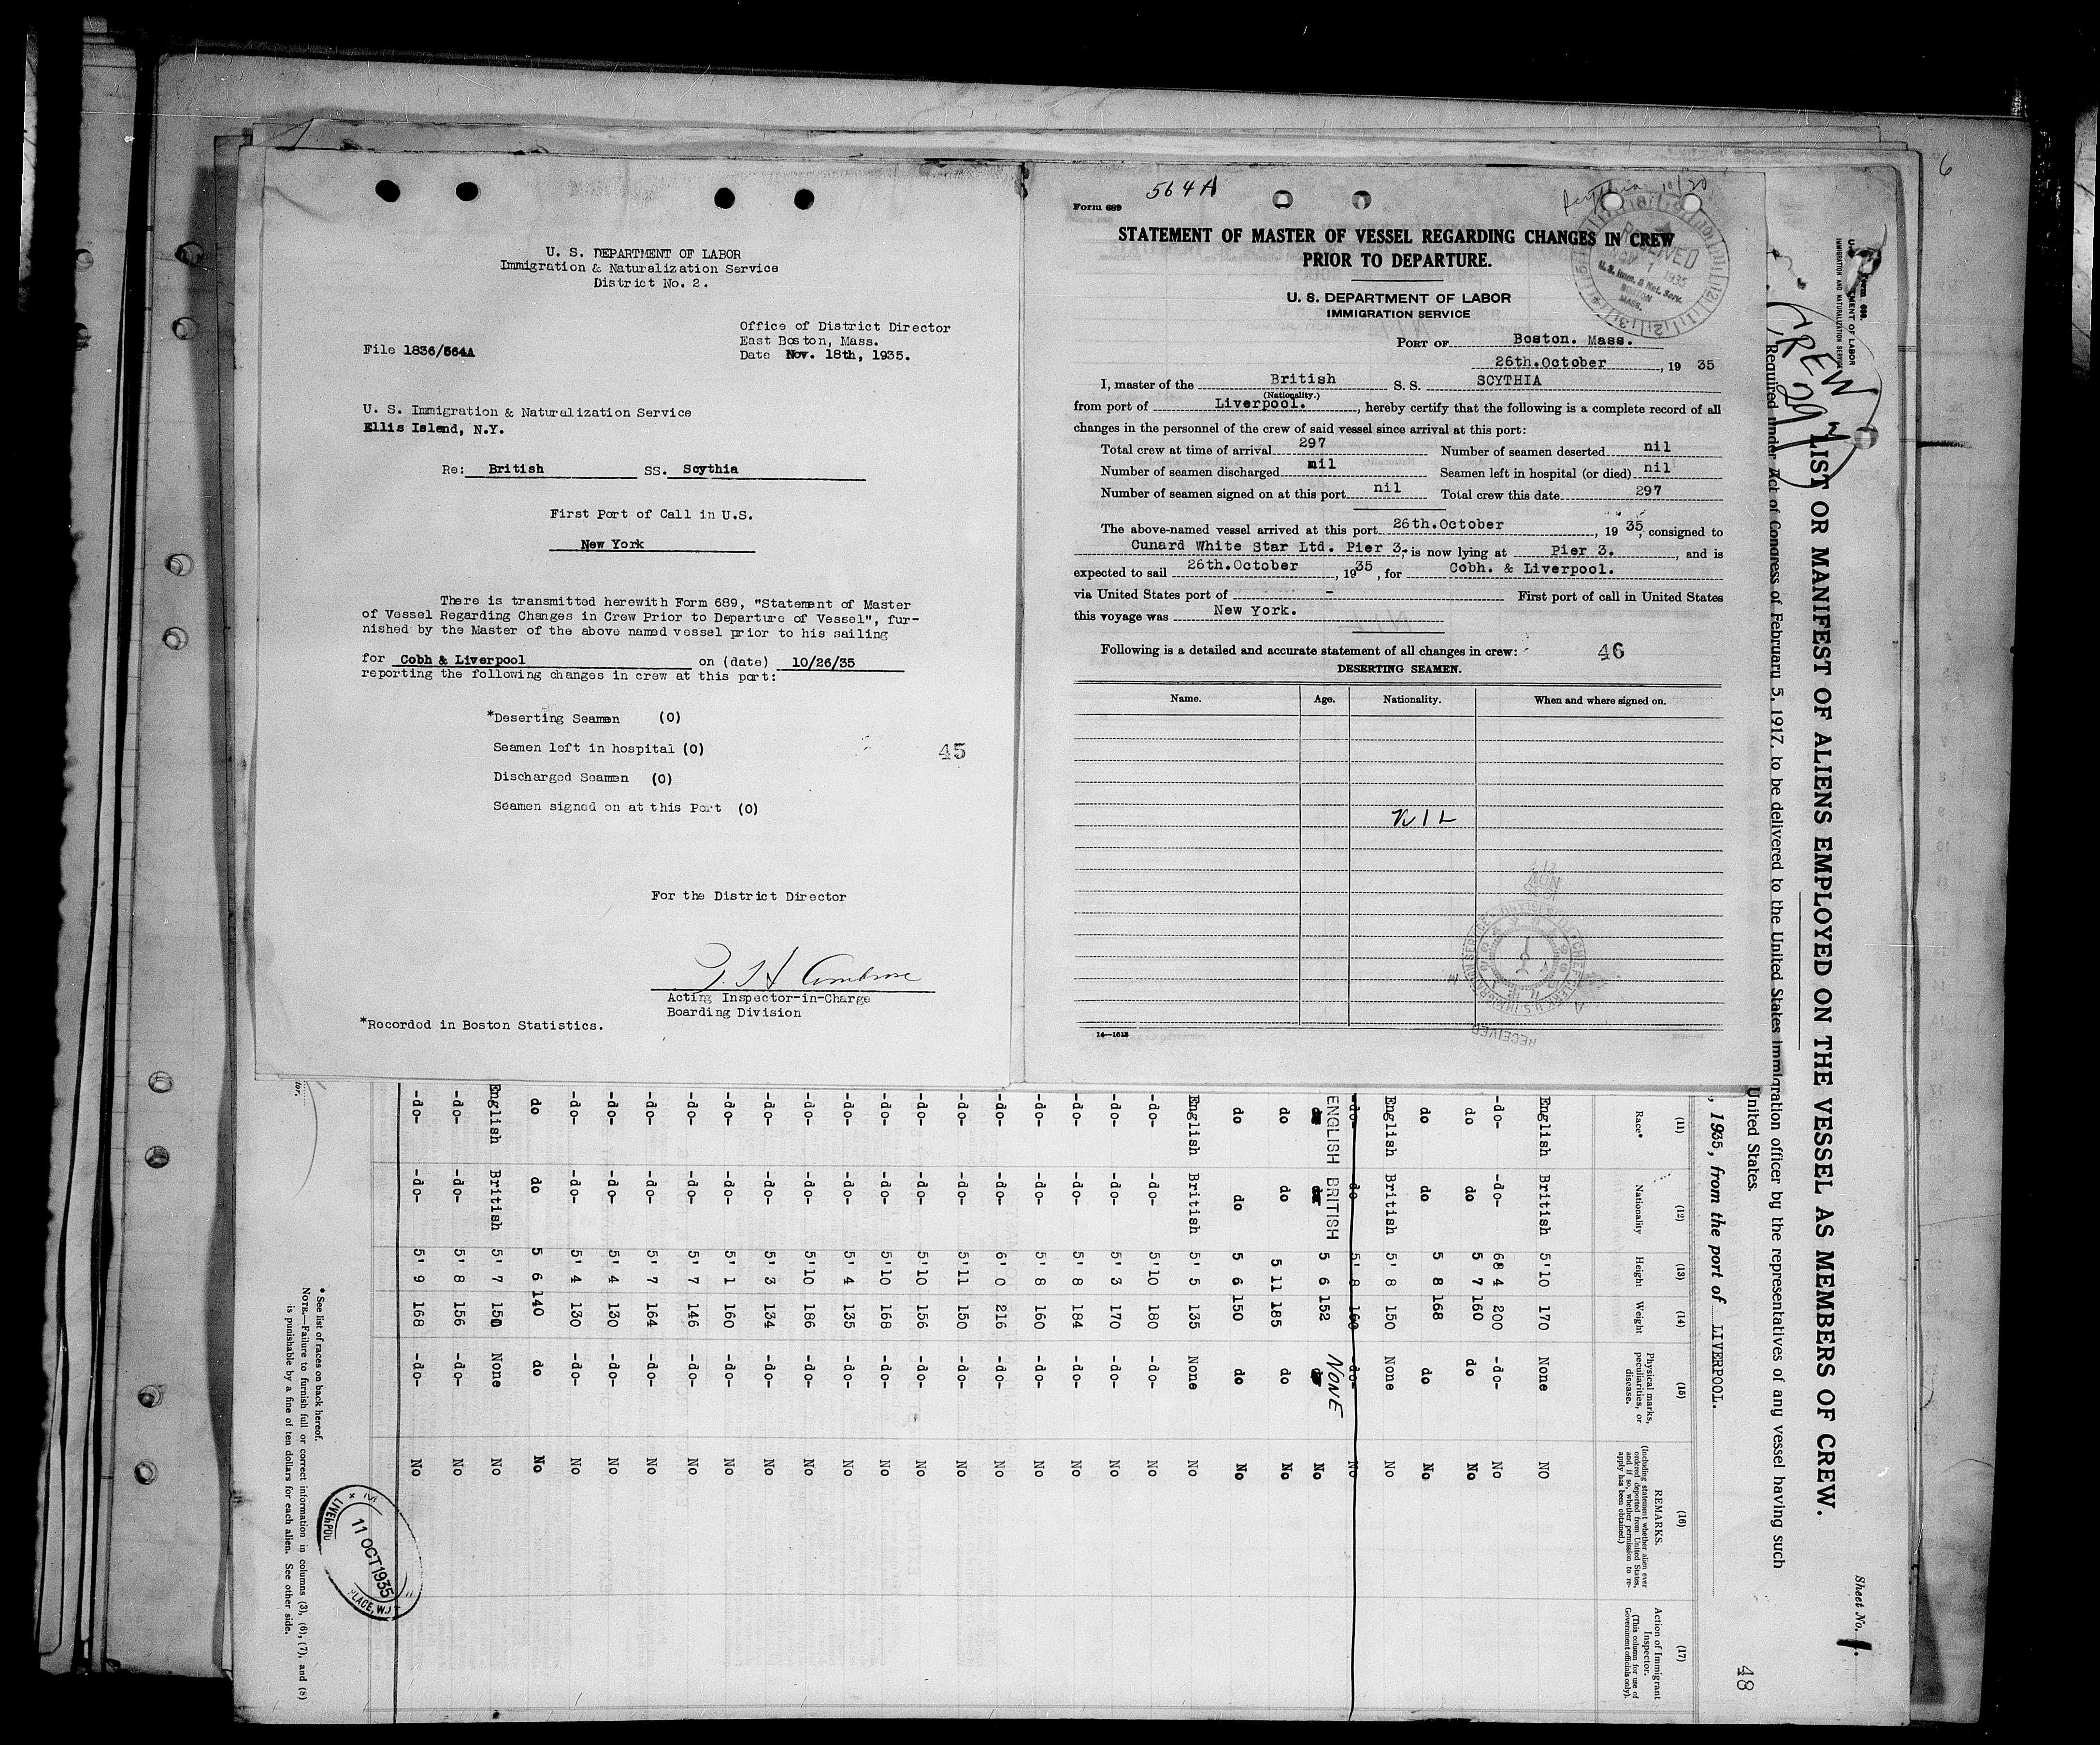 6
U. S. DEPARTMENT OF LABOR
Immigration & Naturalization Service
District No. 2.
Office of District Director
East Boston, Mass.
File 1836/564A
Date Nov. 18th, 1935.
U. S. Immigration & Naturalization Service
Ellis Island, N.Y.
Re: British SS. Scythia
First Port of Call in U.S.
New York
There is transmitted herewith Form 689, "Statement of Master
of Vessel Regarding Changes in Crew Prior to Departure of Vessel", fur-
nished by the Master of the above named vessel prior to his sailing
for Cobh & Liverpool on (date) 10/26/35
reporting the following changes in crew at this port:
*Deserting Seamen (0)
Seamen left in hospital (0)
45
Discharged Seamen (0)
Seamen signed on at this Port (0)
For the District Director
Acting Inspector-in-Charge
Boarding Division
*Recorded in Boston Statistics.
564A
Form 689
10/20
STATEMENT OF MASTER OF VESSEL REGARDING CHANGES IN CREW
PRIOR TO DEPARTURE.
RECEIVED
NOV 1 1935
U.S. Imm. & Nat. Serv.
BOSTON
MASS.
U. S. DEPARTMENT OF LABOR
IMMIGRATION SERVICE
PORT OF Boston. Mass.
26th.October, 19 35
I, master of the British S. S. SCYTHIA
(Nationality.)
from port of Liverpool., hereby certify that the following is a complete record of all
changes in the personnel of the crew of said vessel since arrival at this port:
Total crew at time of arrival 297 Number of seamen deserted nil
Number of seamen discharged nil Seamen left in hospital (or died) nil
Number of seamen signed on at this port nil Total crew this date 297
The above-named vessel arrived at this port 26th.October, 19 35, consigned to
Cunard White Star Ltd. Pier 3. is now lying at Pier 3., and is
expected to sail 26th.October, 19 35, for Cobh. & Liverpool.
via United States port of - First port of call in United States
this voyage was New York.
Following is a detailed and accurate statement of all changes in crew:
46
DESERTING SEAMEN.
Name. Age. Nationality. When and where signed on.
NIL
RECEIVED
14—1613
Form 689.
IMMIGRATION AND NATURALIZATION SERVICE
CREW
Sheet No. 1.
LIST OR MANIFEST OF ALIENS EMPLOYED ON THE VESSEL AS MEMBERS OF CREW.
Required under Act of Congress of February 5, 1917, to be delivered to the United States immigration officer by the representatives of any vessel having such
United States.
48
, 1935, from the port of LIVERPOOL.
(11) (12) (13) (14) (15) (16) (17)
Race* Nationality Height Weight Physical marks, peculiarities, or disease. REMARKS. (Including statement whether alien ever ordered deported from United States, and if so, whether permission to reapply has been obtained.) Action of Immigrant Inspector. (This column for use of Government officials only).
English British 5'10 170 None NO
-do- -do- 68 4 200 -do- No
do do 5 7 160 do No
do do 5 8 168 do No
English British 5' 8 150 None No
-do- -do- 5' 8 160 -do- No
ENGLISH BRITISH 5 6 152 NONE No
do do 5 11 185 do No
do do 5 6 150 do No
English British 5' 5 135 None No
-do- -do- 5'10 180 -do- No
-do- -do- 5' 3 170 -do- No
-do- -do- 5' 8 184 -do- No
-do- -do- 5' 8 160 -do- No
-do- -do- 6' 0 216 -do- No
-do- -do- 5'11 150 -do- No
-do- -do- 5'10 156 -do- No
-do- -do- 5'10 168 -do- No
-do- -do- 5' 4 135 -do- No
-do- -do- 5'10 186 -do- No
-do- -do- 5' 3 134 -do- No
-do- -do- 5' 1 160 -do- No
-do- -do- 5' 7 146 -do- No
-do- -do- 5' 7 164 -do- No
-do- -do- 5' 4 130 -do- No
-do- -do- 5' 4 130 -do- No
do do 5 6 140 do No
English British 5' 7 150 None No
-do- -do- 5' 8 156 -do- No
-do- -do- 5' 9 168 -do- No
* See list of races on back hereof.
NOTE.—Failure to furnish full or correct information in columns (3), (6), (7), and (8)
is punishable by a fine of ten dollars for each alien. See other side.
LIVERPOOL
11 OCT 1935
PLACE, W.1